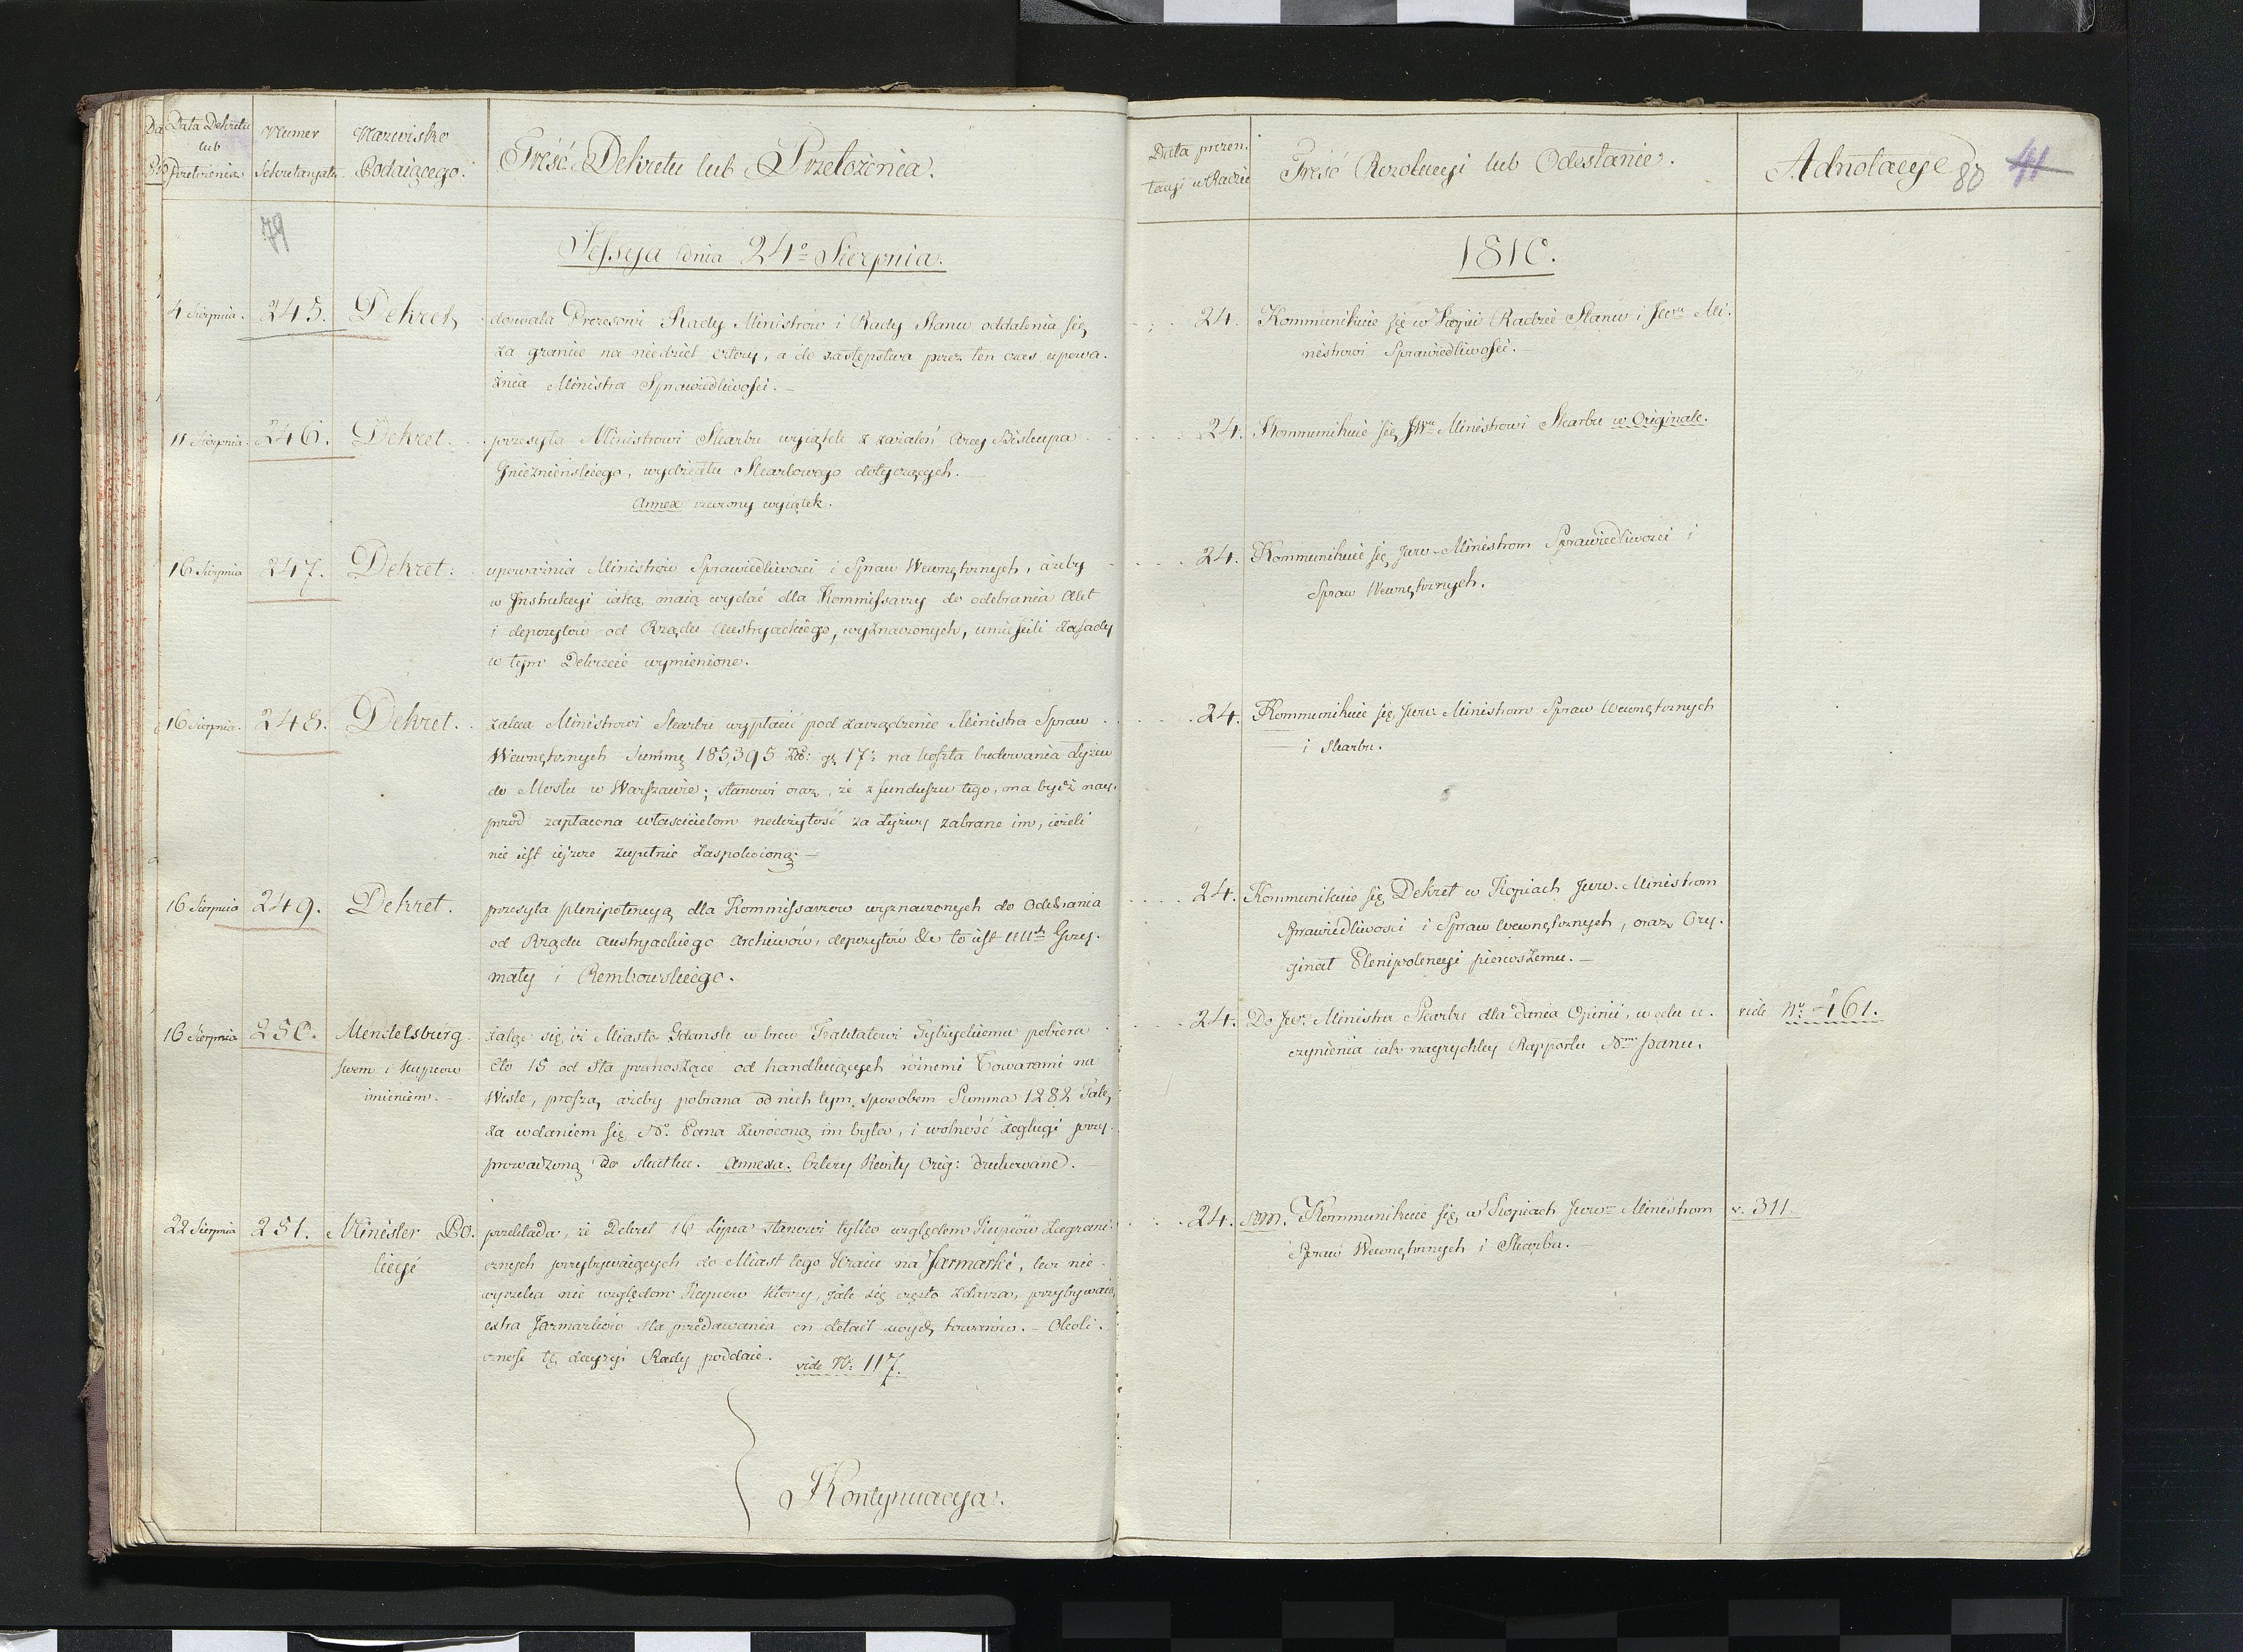 Data Dekretu Numer Nazwisko Treść Dekretu lub Przełożenia.
lub
Przełożenia Sekretaryatu Podaiącego.
79
Sessya dnia 24º Sierpnia.
4 Sierpnia. 245. Dekret, dozwala Prezesowi Rady Ministrów i Rady Stanu oddalenia się
za granicę na niedziel cztery, a do zastępstwa przez ten czas upowa-
żnia Ministra Sprawiedliwości. —
11 Sierpnia. 246. Dekret. przesyła Ministrowi Skarbu wyiątek z zażaleń Arcy Biskupa
Gnieznieńskiego, wydziału Skarbowego dotyczących. —
Annex rzeczony wyiątek.
16 Sierpnia 247. Dekret. upoważnia Ministrów Sprawiedliwosci i Spraw Wewnętrznych, ażeby
w Instrukcyi iaką maią wydać dla Kommissarzy do odebrania Akt
i depozytów od Rządu Austryackiego, wyznaczonych, umieścili zasady
w tym Dekrecie wymienione.
16 Sierpnia. 248. Dekret. zaleca Ministrowi Skarbu wypłacić pod zarządzenie Ministra Spraw
Wewnętrznych Summę 185,395 Zł: gr 17: na koszta budowania łyżew
do Mostu w Warszawie; stanowi oraz, że z funduszu tego, ma bydź nay-
przód zapłacona właścicielom należytość za łyżwy zabrane im, ieżeli
nie iest ieszcze zupełnie zaspokoioną. —
16 Sierpnia 249. Dekret. przesyła plenipotencyą dla Kommissarzów wyznaczonych do Odebrania
od Rządu Austryackiego Archiwów, depozytów &c to iest Grzy-
mały i Rembowskiego.
16 Sierpnia 250. Mendelsburg żalą się iż Miasto Gdansk w brew Traktatowi Tylżyckiemu pobiera
swem i kupców Cło 15 od Sta przenoszące od handluiących róźnemi Towarami na
imieniem. Wisle, proszą ażeby pobrana od nich tym sposobem Summa 1282 Tal.
za wdaniem się Nº Pana zwróconą im była, i wolność żeglugi przy-
prowadzoną do skutku. Annexa. Cztery Kwity Orig: drukowane. —
22 Sierpnia 251. Minister Po- przekłada, że Dekret 16 Lipca stanowi tylko względem Kupców zagrani-
licyi cznych przybywaiących do Miast tego Kraiu na Jarmarki, lecz nie
wyrzeka nic względem Kupców którzy, jak się często zdarza, przybywaią
extra Jarmarków dla przedawania en detail swych towarów. — Okoli-
czność tę decyzyi Rady poddaie. vide Nº 117.
Kontynuacya.
Data prezen- Treść Rezolucyi lub Odesłanie. Adnotacye 80 41
tacyi w Radzie
1810.
24. Kommunikuie się w Kopii Radzie Stanu i Jwu Mi-
nistrowi Sprawiedliwości. —
24. Kommunikuie się JWu Ministrowi Skarbu w Originale.
24. Kommunikuie się Jww. Ministrom Sprawiedliwosci i
Spraw Wewnętrznych.
24. Kommunikuie się Jww. Ministrom Spraw Wewnętrznych
i Skarbu.
24. Kommunikuie się Dekret w Kopiach Jww. Ministrom
Sprawiedliwosci i Spraw Wewnętrznych, oraz Ory-
ginał Plenipotencyi pierwszemu. —
24. Do Jw. Ministra Skarbu dla dania Opinii, w celu u- vide Nº 461.
czynienia iak nayrychley Rapportu Panu.
24. Kommunikuie się w Kopiach Jww. Ministrom v. 311.
Spraw Wewnętrznych i Skarbu. —